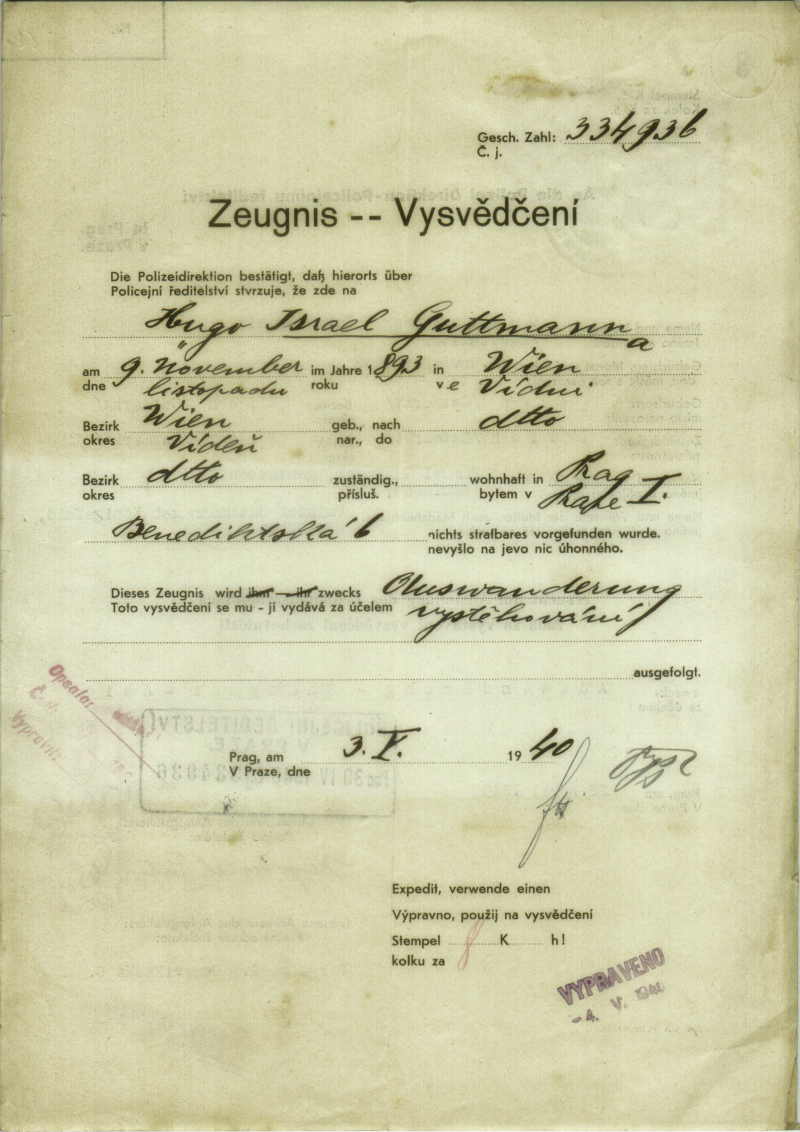 Gesch. Zahl: 334936
Č. j.
Zeugnis -- Vysvědčení
Die Polizeidirektion bestätigt, daß hierorts über
Policejní ředitelství stvrzuje, že zde na
Hugo Israel Guttmann
a
am 9. November im Jahre 1893 in Wien
dne listopadu roku v e Vídni
Bezirk Wien geb., nach dtto
okres Vídeň nar., do
Bezirk dtto zuständig., wohnhaft in Prag
okres přísluš. bytem v Praze I.
Benediktská 6 nichts strafbares vorgefunden wurde.
nevyšlo na jevo nic úhonného.
Dieses Zeugnis wird ihm - ihr zwecks Auswanderung
Toto vysvědčení se mu - jí vydává za účelem vystěhování
ausgefolgt.
Prag, am 3. V. 1940
V Praze, dne
Expedit, verwende einen
Výpravno, použij na vysvědčení
Stempel 8 K h!
kolku za
VYPRAVENO
- 4. V. 1940